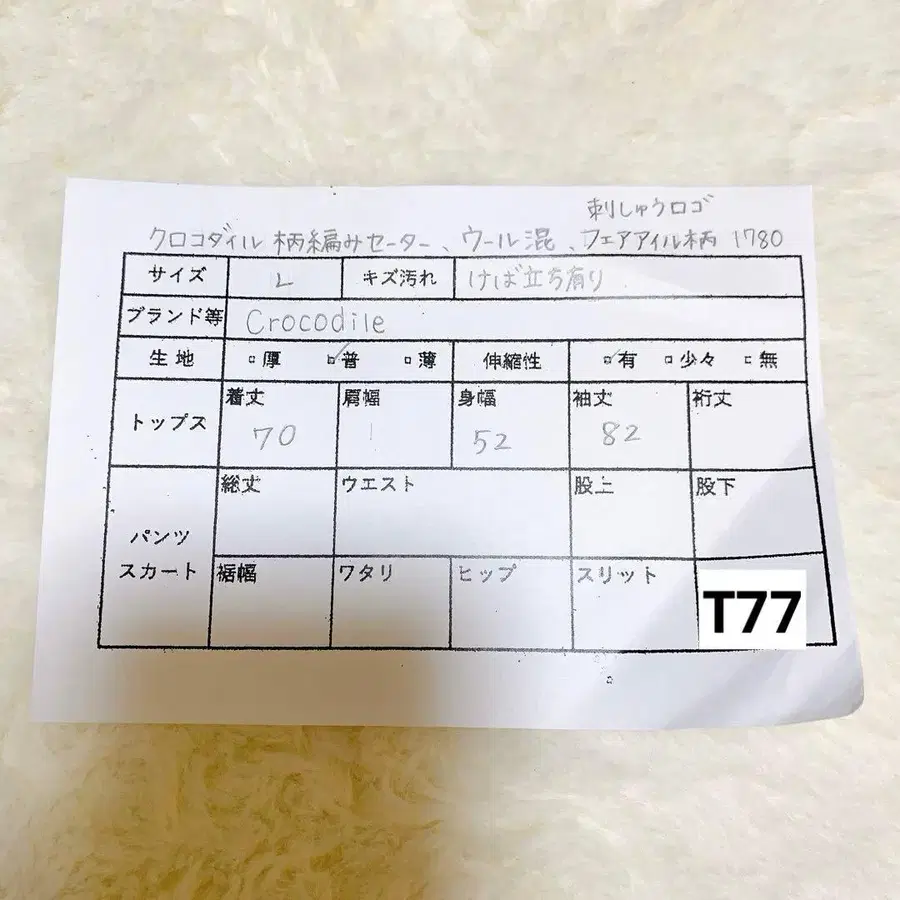 刺しゅうロゴ
クロコダイル 柄編みセーター、ウール混、フェアアイル柄 1780
サイズ L キズ汚れ けば立ち有り
ブランド等 Crocodile
生地 厚 普 薄 伸縮性 有 少々 無
トップス 着丈 肩幅 身幅 袖丈 裄丈
70 52 82
総丈 ウエスト 股上 股下
パンツ
スカート 裾幅 ワタリ ヒップ スリット
T77